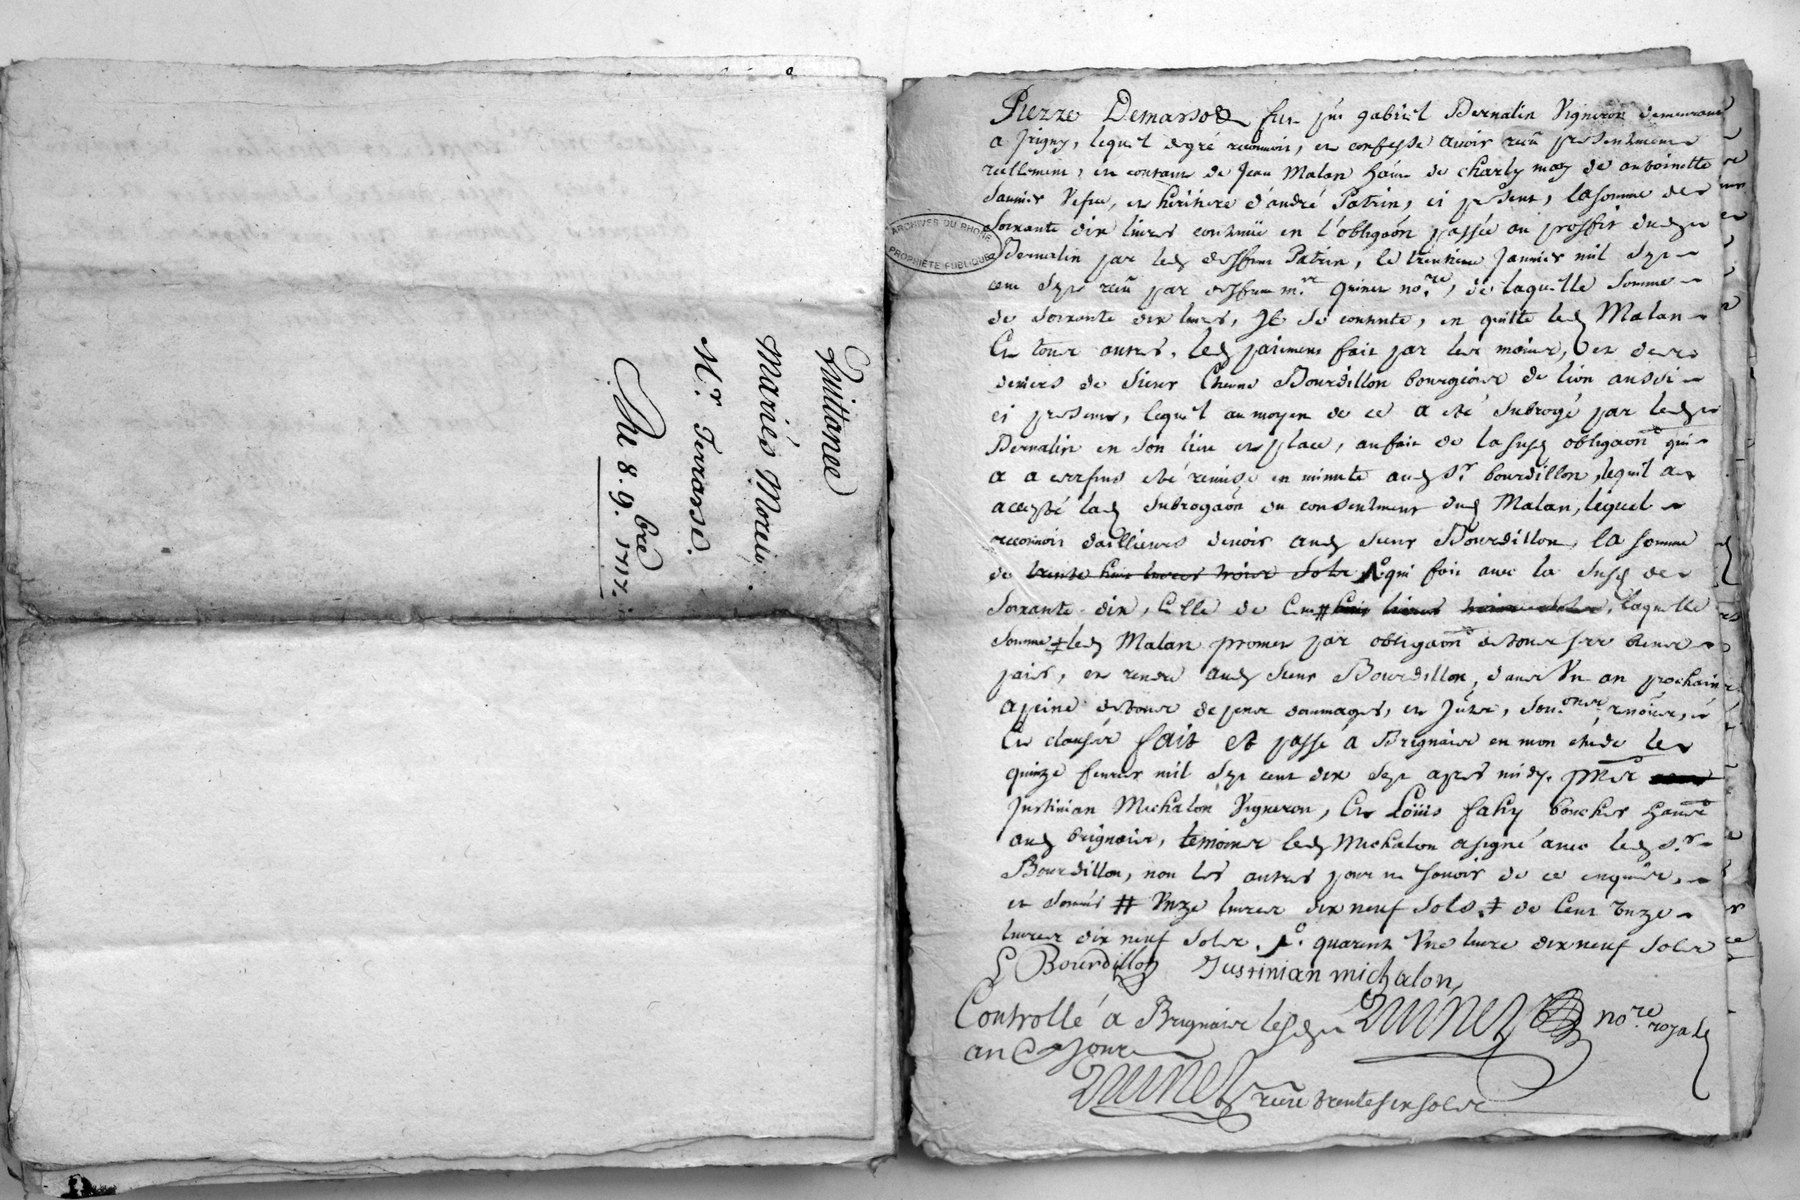 Quittance
Mariés Morin
Mr. Terrasse.
Du 8. 9.bre 1717.
ARCHIVES DU RHONE
PROPRIÉTÉ PUBLIQUE
Pierre fut p.nt gabriel Dernalin Vigneron demeurant
a Jrigny, lequel degré reconnoit, et confesse avoir receu presentement
reellement, et contant de Jean Malan de charly mary de antoinette
Saunier Vefve, et heritiere d'andré Patrin, ci present, la somme de
Soixante dix livres contenüe en l'obligãon passée au proffit dud
Dernalin par led deffunt Patrin, le trentieme Janvier mil sept
cent sept receu par deffunt m.re Quinet no.re, de laquelle somme
de soixante dix livres, Jl se contente, en quitte led Malan
Et tous autres, led paiement fait par les moins, et des
deniers de sieur Bourdillon bourgeois de lion aussi
ci present, lequel au moyen de ce a eté subrogé par led
Dernalin en son lieu et place, au fait de la susd obligãon qui
a eté remise en minute aud s.r bourdillon, lequel a
accepté lad subrogãon du consentement dud Malan, lequel
reconnoit dailleurs devoir aud sieur Bourdillon, la somme
de trente huit livres treize sols qui fait avec la susd de
Soixante dix, Celle de Cent # huit livres laquelle
somme ‡ led Malan promet par obligãon de tous ses biens
paier, et rendre aud sieur Bourdillon, dans Vn an prochain
a peine de tous depens domages, et
Et clauses fait et passé a Brignais en mon etude le
quinze fevrier mil sept cent dix sept apres midy. pnts
Justinian Michalon Vigneron, Et Loüis faky boucher
aud brignais, temoins led Michalon a signé avec led s.r
Bourdillon, non les autres pour ne savoir de ce enquis,
et # Vnze livres dix neuf sols. ‡ de Cent Vnze
livres dix neuf sols. quarente Vne livre dix neuf sols
Bourdillon Justinian michalon
Controllé a Brignais Quinet no.re royal
Quinet receu trente six sols